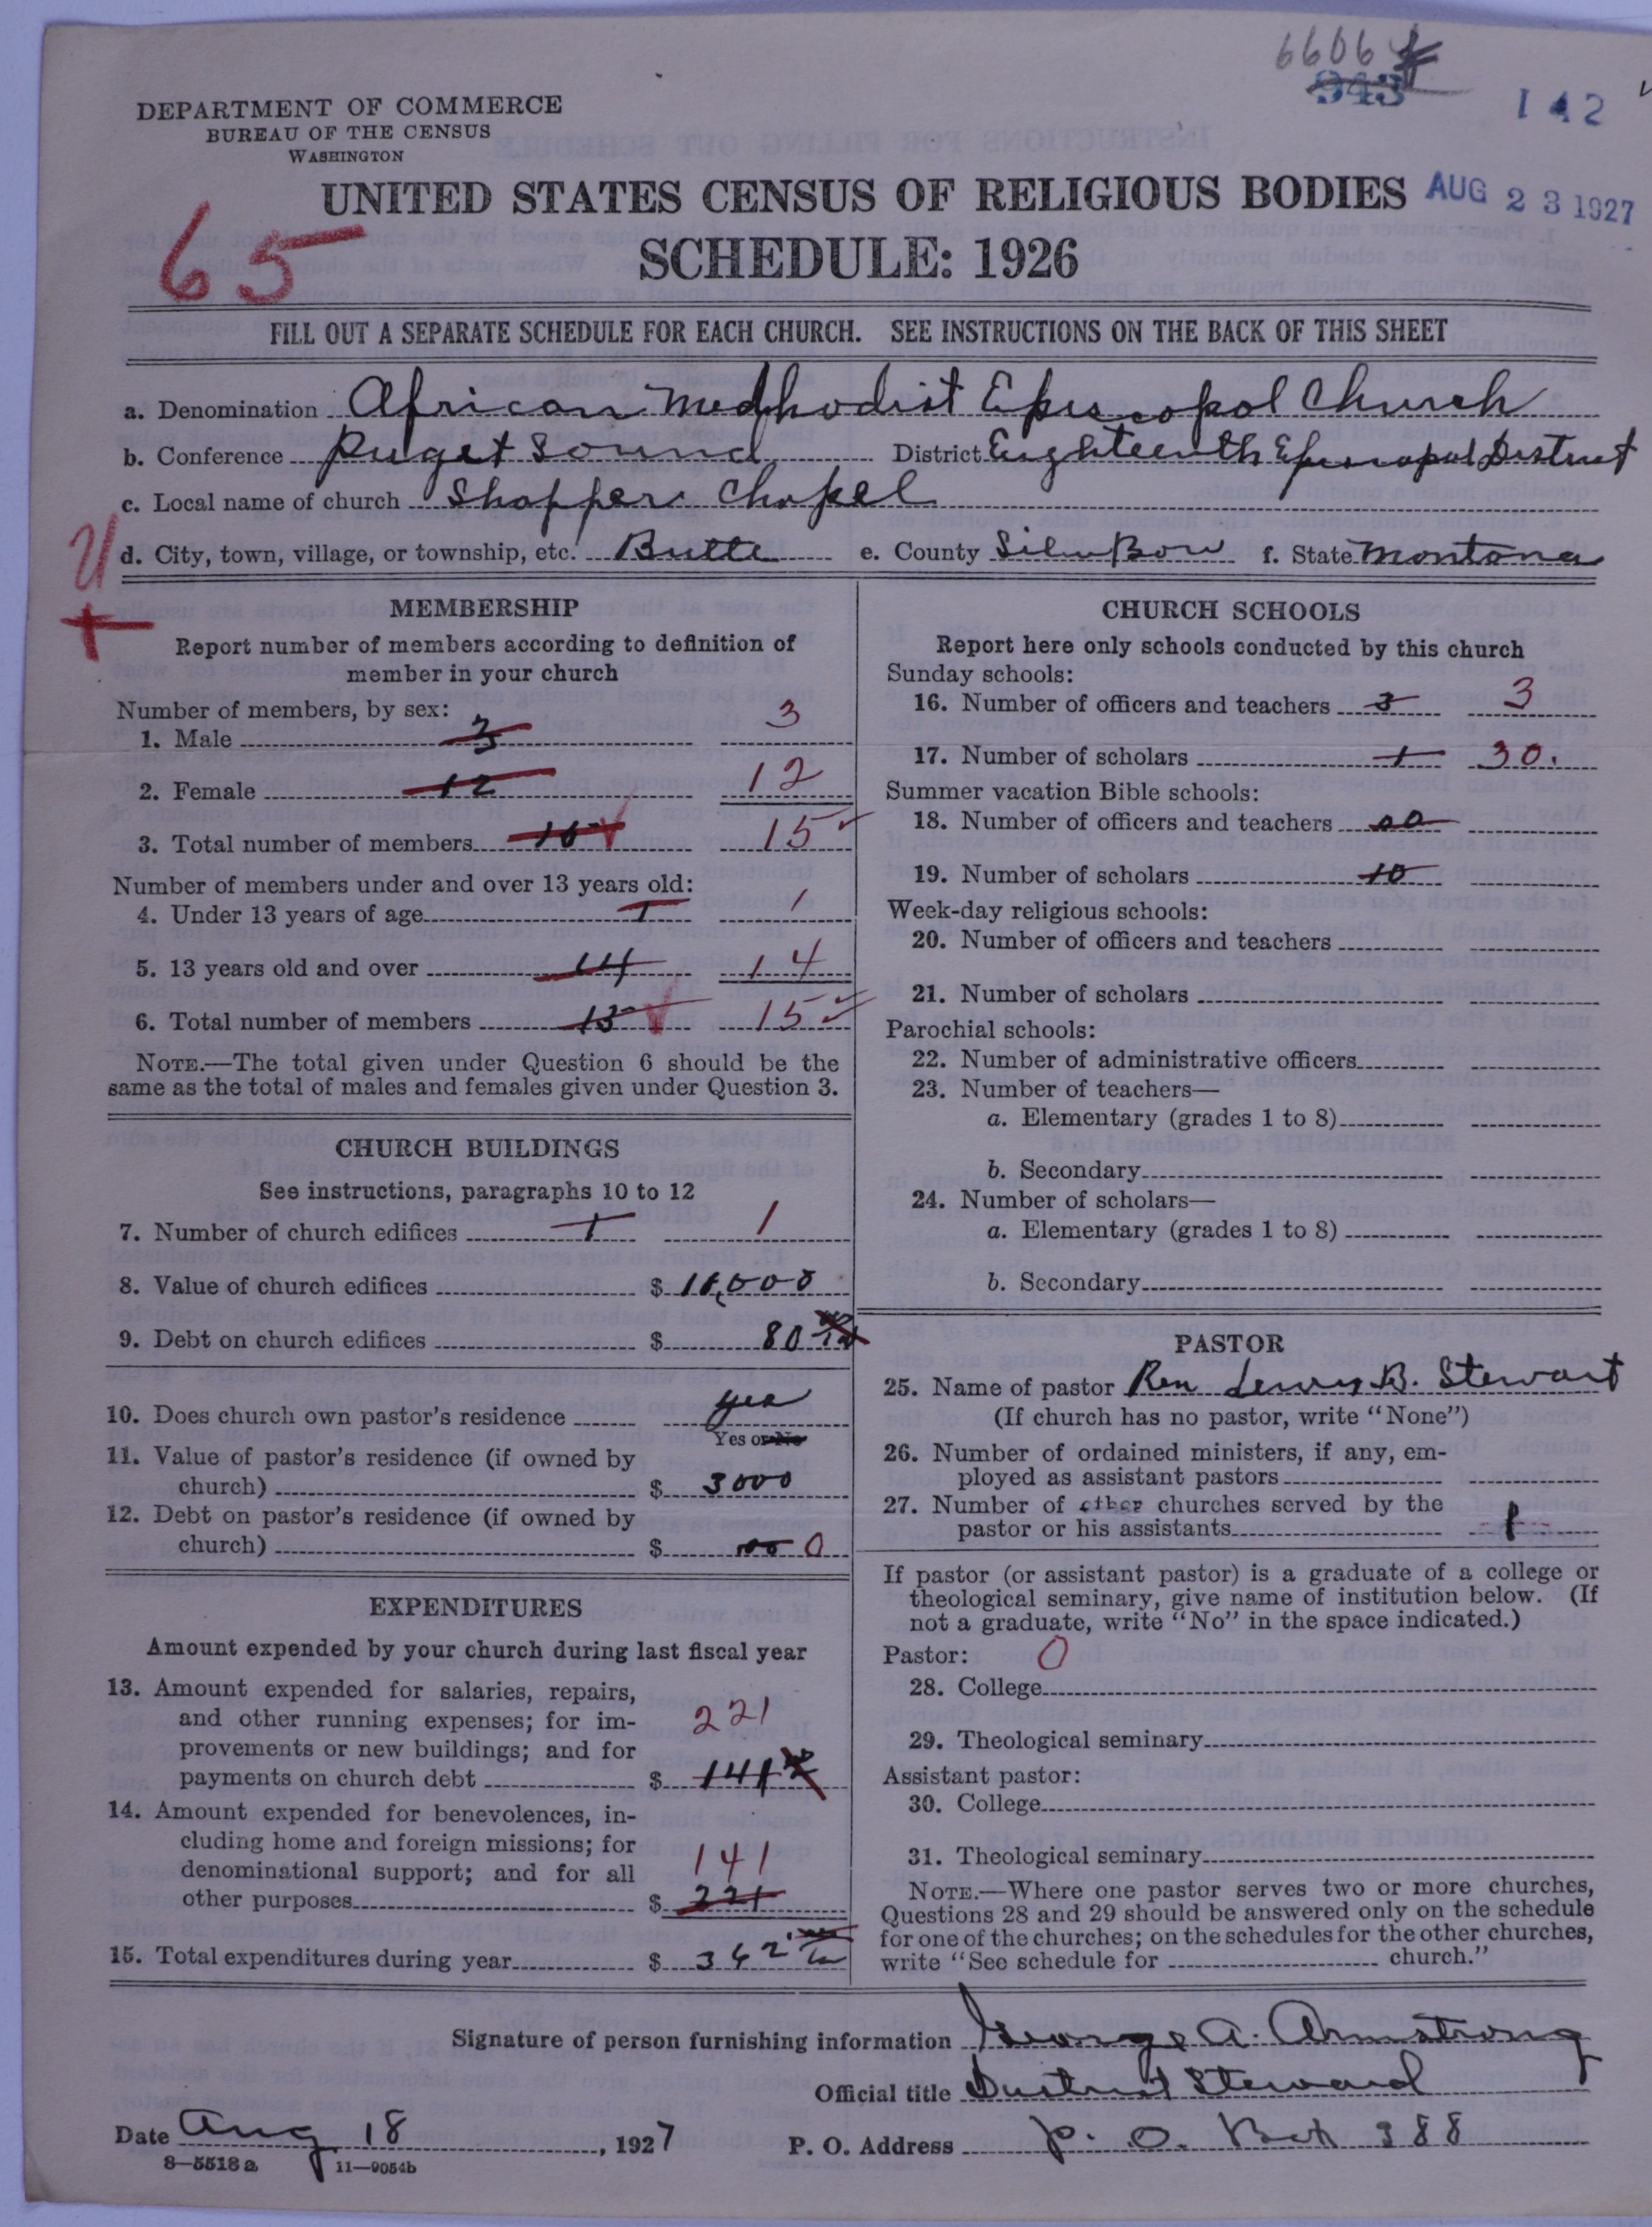 6606
943
142
DEPARTMENT OF COMMERCE
BUREAU OF THE CENSUS
WASHINGTON
UNITED STATES CENSUS OF RELIGIOUS BODIES
AUG 23 1927
SCHEDULE: 1926
65
FILL OUT A SEPARATE SCHEDULE FOR EACH CHURCH. SEE INSTRUCTIONS ON THE BACK OF THIS SHEET
a. Denomination African Methodist Episcopal Church
b. Conference Puget Sound District Eighteenth Episcopal District
c. Local name of church Chapel
d. City, town, village, or township, etc. Butte e. County Silver Bow f. State Montana
MEMBERSHIP
Report number of members according to definition of
member in your church
Number of members, by sex:
1. Male 3 3
2. Female 12 12
3. Total number of members 15 15
Number of members under and over 13 years old:
4. Under 13 years of age 1 1
5. 13 years old and over 14 14
6. Total number of members 15 15
NOTE.—The total given under Question 6 should be the
same as the total of males and females given under Question 3.
CHURCH BUILDINGS
See instructions, paragraphs 10 to 12
7. Number of church edifices 1 1
8. Value of church edifices $
9. Debt on church edifices $ 80
10. Does church own pastor's residence yes
Yes or No
11. Value of pastor's residence (if owned by
church) $ 3000
12. Debt on pastor's residence (if owned by
church) $ 000 0
EXPENDITURES
Amount expended by your church during last fiscal year
13. Amount expended for salaries, repairs,
and other running expenses; for im-
provements or new buildings; and for
payments on church debt $ 141 221
14. Amount expended for benevolences, in-
cluding home and foreign missions; for
denominational support; and for all
other purposes $ 221 141
15. Total expenditures during year $ 362
CHURCH SCHOOLS
Report here only schools conducted by this church
Sunday schools:
16. Number of officers and teachers 3 3
17. Number of scholars 1 30.
Summer vacation Bible schools:
18. Number of officers and teachers 00
19. Number of scholars 10
Week-day religious schools:
20. Number of officers and teachers
21. Number of scholars
Parochial schools:
22. Number of administrative officers
23. Number of teachers—
a. Elementary (grades 1 to 8)
b. Secondary
24. Number of scholars—
a. Elementary (grades 1 to 8)
b. Secondary
PASTOR
25. Name of pastor Rev B. Stewart
(If church has no pastor, write "None")
26. Number of ordained ministers, if any, em-
ployed as assistant pastors
27. Number of other churches served by the
pastor or his assistants 1
If pastor (or assistant pastor) is a graduate of a college or
theological seminary, give name of institution below. (If
not a graduate, write "No" in the space indicated.)
Pastor: 0
28. College
29. Theological seminary
Assistant pastor:
30. College
31. Theological seminary
NOTE.—Where one pastor serves two or more churches,
Questions 28 and 29 should be answered only on the schedule
for one of the churches; on the schedules for the other churches,
write "See schedule for church."
Signature of person furnishing information George A. Armstrong
Official title District Steward
Date Aug 18, 1927 P. O. Address P. O. Box 388
8—5518a 11—9054b